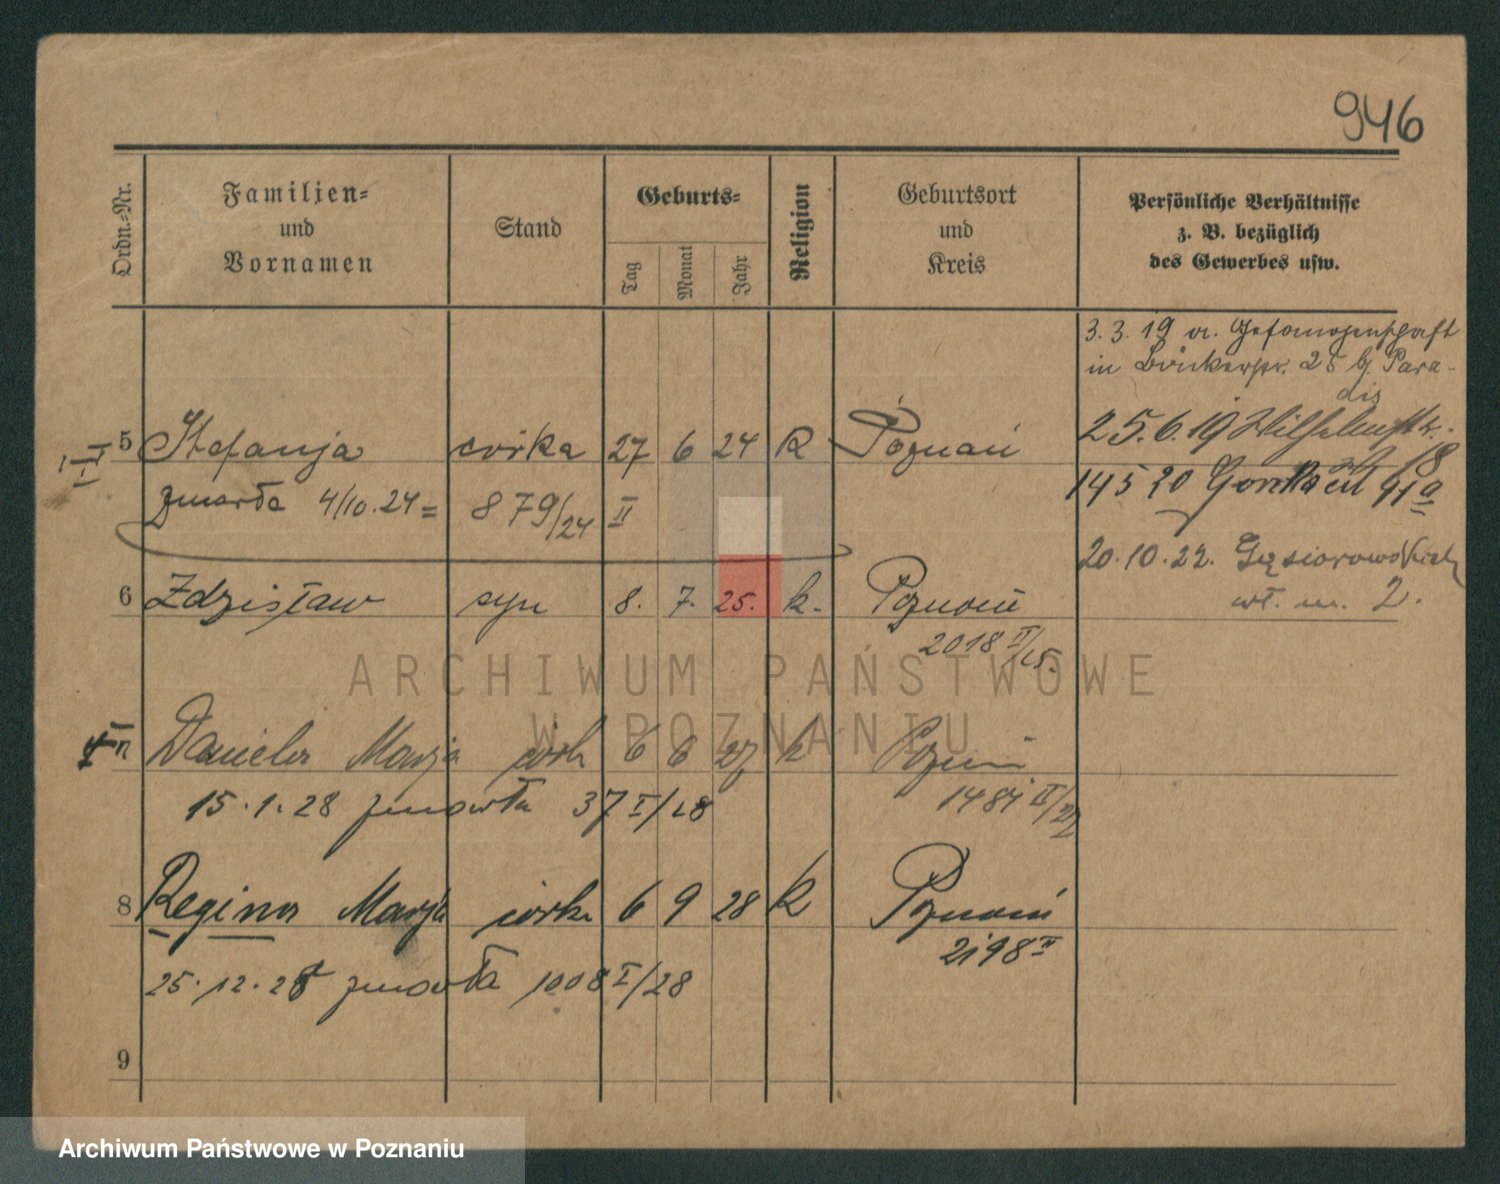 946
Ordn.-Nr.
Familien-
und
Vornamen
Stand
Geburts-
Tag
Monat
Jahr
Religion
Geburtsort
und
Kreis
Persönliche Verhältnisse
z. B. bezüglich
des Gewerbes usw.
3.3.19 a. Gefangenschaft
in 25 b. Para-
dis
5 Stefanja córka 27 6 24 K Poznań
25.6.19 Wilhelmstr. 18
zmarła 4/10.24 = 879/24 II
14 5 20 91a
20.10.22. Gąsiorowskich
wł. m. 2.
6 Zdzisław syn 8. 7. 25. k. Poznań
2018 II/25.
ARCHIWUM PAŃSTWOWE
W POZNANIU
Daniela Marja córk 6 6 27 k Poznań
15.1.28 zmarła 37 I/28
1484 II/27
8 Regina Marja córka 6 9 28 K Poznań
2198 II
25.12.28 zmarła 1008 I/28
9
Archiwum Państwowe w Poznaniu